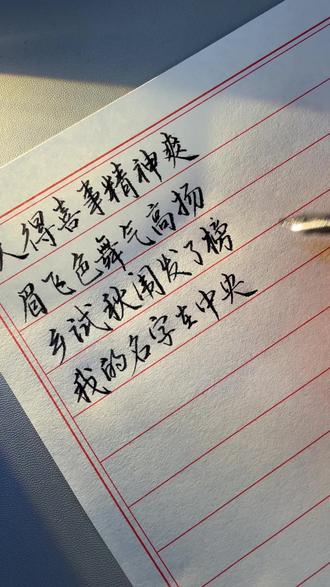 人得喜事精神爽
眉飞色舞气高扬
乡试秋闱发了榜
我的名字在中央